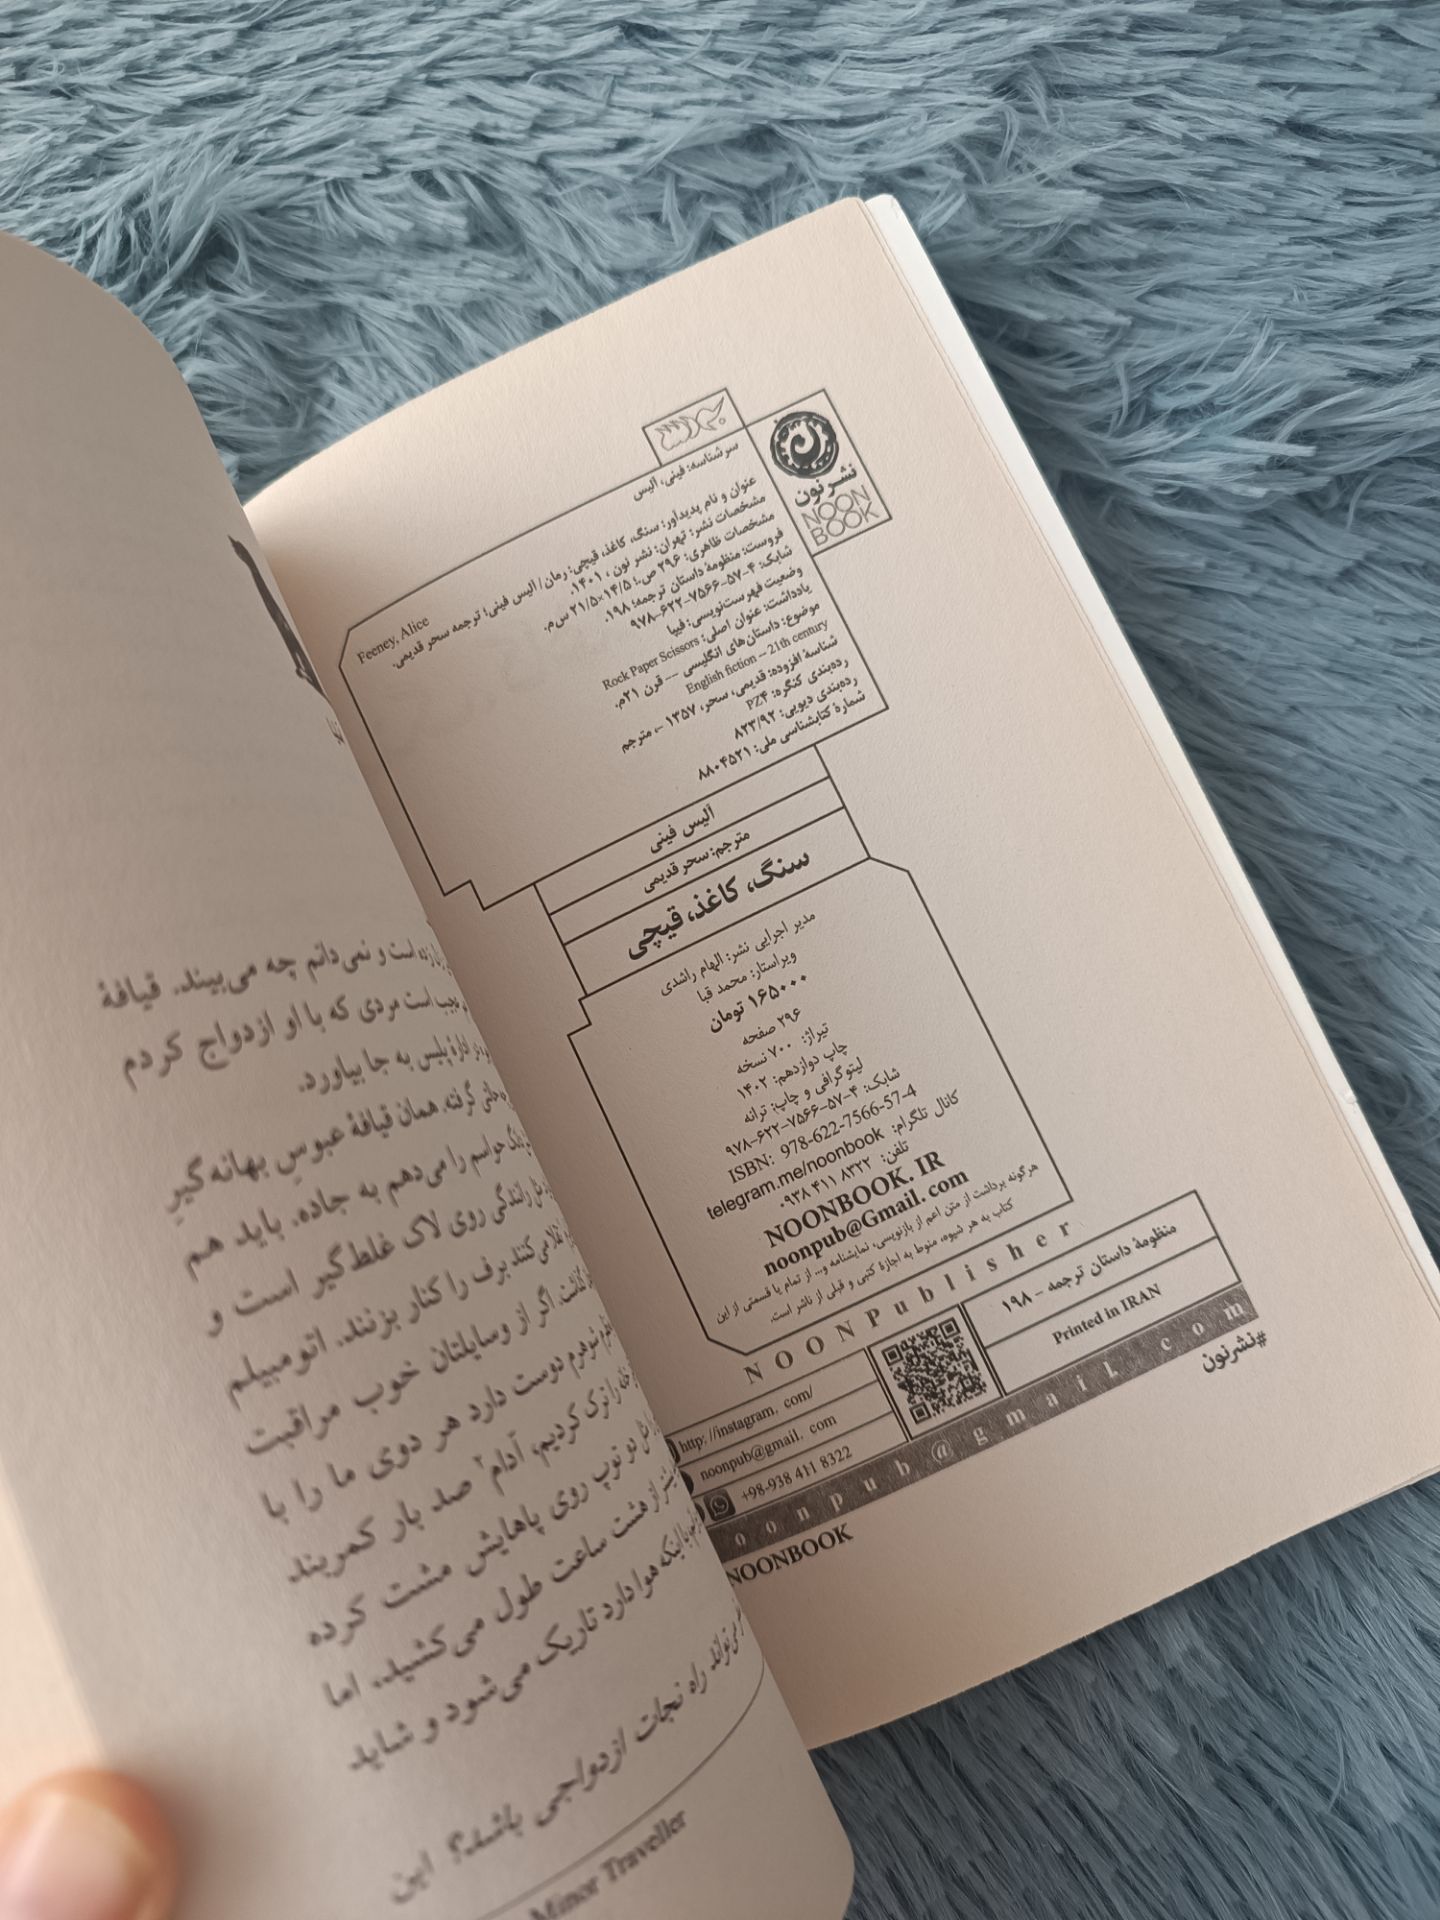 نشر نون
NOON
BOOK
سرشناسه: فینی، آلیس
Feeney, Alice
عنوان و نام پدیدآور: سنگ، کاغذ، قیچی: رمان/ آلیس فینی؛ ترجمه سحر قدیمی.
مشخصات نشر: تهران: نشر نون، ۱۴۰۱.
مشخصات ظاهری: ۲۹۶ ص.؛ ۱۴/۵×۲۱/۵ س‌م.
فروست: منظومهٔ داستان ترجمه؛ ۱۹۸.
شابک: ۴-۵۷-۷۵۶۶-۶۲۲-۹۷۸
وضعیت فهرست‌نویسی: فیپا
یادداشت: عنوان اصلی: Rock Paper Scissors
موضوع: داستان‌های انگلیسی -- قرن ۲۱م.
English fiction -- 21th century
شناسهٔ افزوده: قدیمی، سحر، ۱۳۵۷ -، مترجم
رده‌بندی کنگره: PZ۴
رده‌بندی دیویی: ۸۲۳/۹۲
شمارهٔ کتابشناسی ملی: ۸۸۰۴۵۲۱
آلیس فینی
مترجم: سحر قدیمی
سنگ، کاغذ، قیچی
مدیر اجرایی نشر: الهام راشدی
ویراستار: محمد قبا
۱۶۵۰۰۰ تومان
۲۹۶ صفحه
تیراژ: ۷۰۰ نسخه
چاپ دوازدهم: ۱۴۰۲
لیتوگرافی و چاپ: ترانه
شابک: ۴-۵۷-۷۵۶۶-۶۲۲-۹۷۸
ISBN: 978-622-7566-57-4
کانال تلگرام: telegram.me/noonbook
تلفن: ۸۳۲۲ ۴۱۱ ۰۹۳۸
NOONBOOK. IR
noonpub@Gmail. com
هرگونه برداشت از متن اعم از بازنویسی، نمایشنامه و... از تمام یا قسمتی از این
کتاب به هر شیوه، منوط به اجازهٔ کتبی و قبلی از ناشر است.
NOONPublisher
منظومهٔ داستان ترجمه - ۱۹۸
Printed in IRAN
http: //instagram. com/
noonpub@gmail. com
+98-938 411 8322
oonpub@gmail.com
#نشرنون
NOONBOOK
است و نمی‌دانم چه می‌بیند. قیافهٔ
است مردی که با او ازدواج کردم
ادارهٔ پلیس به جا بیاورد.
گرفته. همان قیافهٔ عبوسِ بهانه‌گیرِ
حواسم را می‌دهم به جاده. باید هم
رانندگی روی لاک غلط‌گیر است و
می‌کنند برف را کنار بزنند. اتومبیلم
اگر از وسایلتان خوب مراقبت
شوهرم دوست دارد هر دوی ما را با
را ترک کردیم، آدام۲ صد بار کمربند
دو توپ روی پاهایش مشت کرده
از هشت ساعت طول می‌کشید. اما
اینکه هوا دارد تاریک می‌شود و شاید
می‌تواند راه نجات ازدواجی باشد؟ این
Minor Traveller